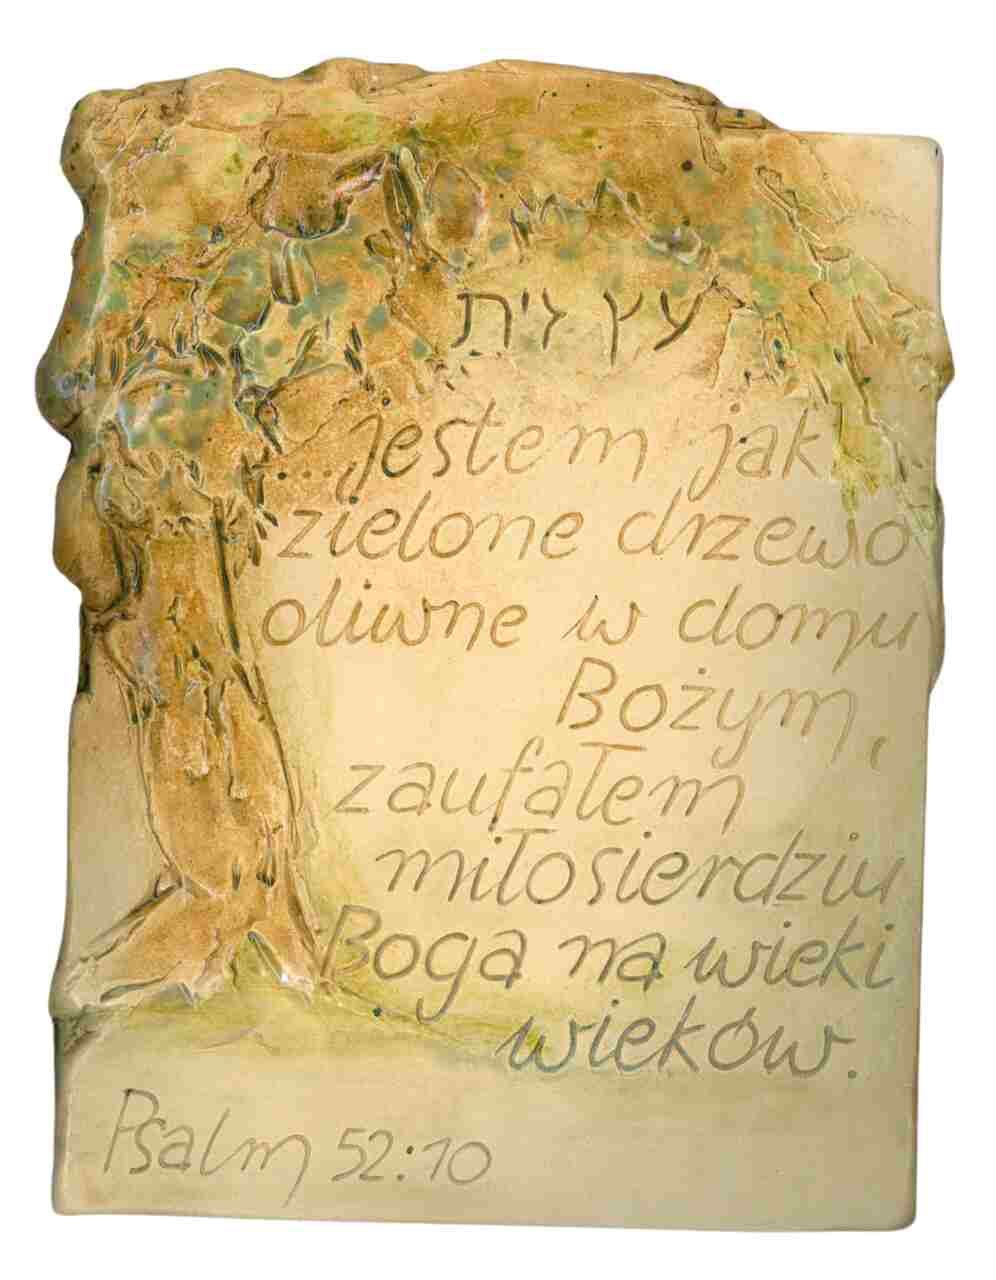 עץ זית
...jestem jak
zielone drzewo
oliwne w domu
Bożym,
zaufałem
miłosierdziu
Boga na wieki
wieków.
Psalm 52:10